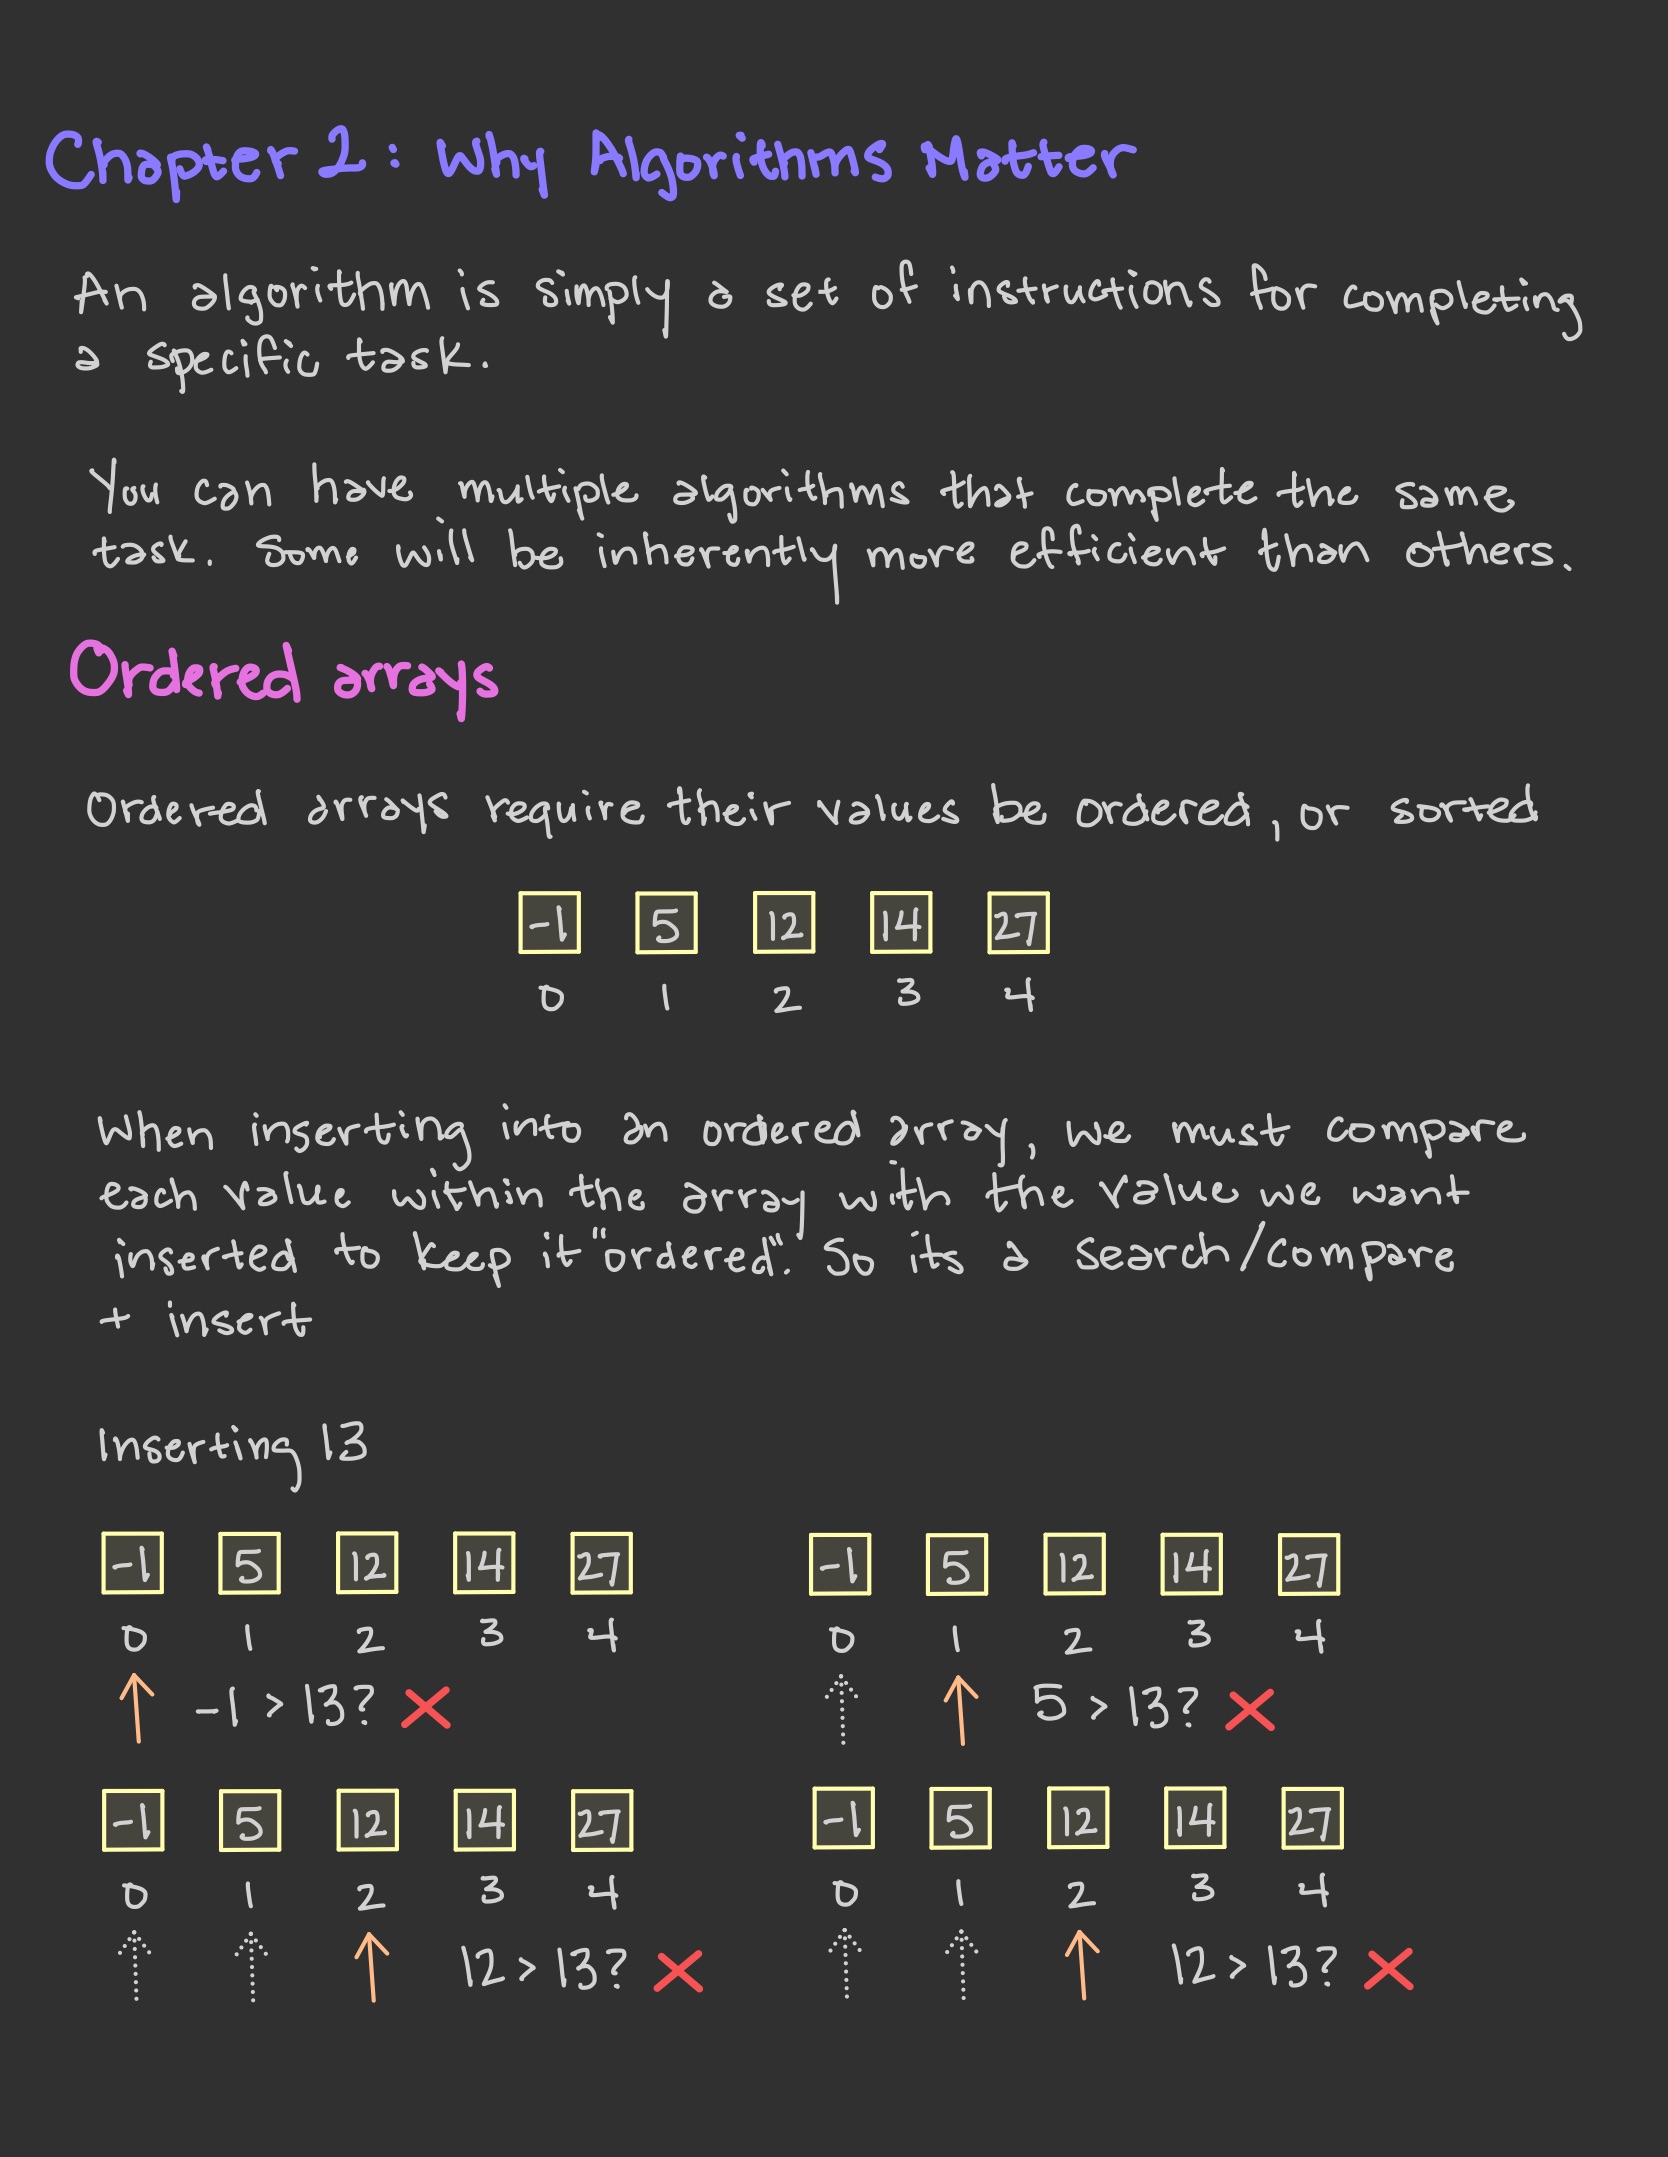 Chapter 2: Why Algorithms Matter
An algorithm is simply a set of instructions for completing
a specific task.
You can have multiple algorithms that complete the same
task. Some will be inherently more efficient than others.
Ordered arrays
Ordered arrays require their values be ordered, or sorted
-1 5 12 14 27
0 1 2 3 4
When inserting into an ordered array, we must compare
each value within the array with the value we want
inserted to keep it "ordered". So its a search/compare
+ insert
Inserting 13
-1 5 12 14 27
0 1 2 3 4
-1 > 13?
-1 5 12 14 27
0 1 2 3 4
5 > 13?
-1 5 12 14 27
0 1 2 3 4
12 > 13?
-1 5 12 14 27
0 1 2 3 4
12 > 13?